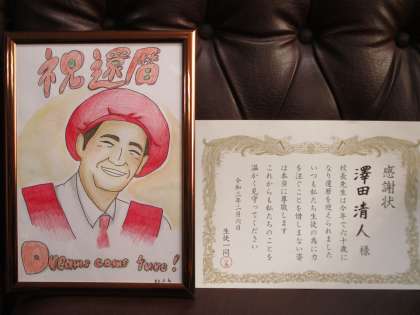 祝還暦
Dreams come ture!
感謝状
澤田 清人 様
校長先生は今年で六十歳に
なり還暦を迎えられました
いつも私たち生徒の為に力
を注ぐことを惜しまない姿
は本当に尊敬します
これからも私たちのことを
温かく見守ってください
令和二年二月六日
生徒一同